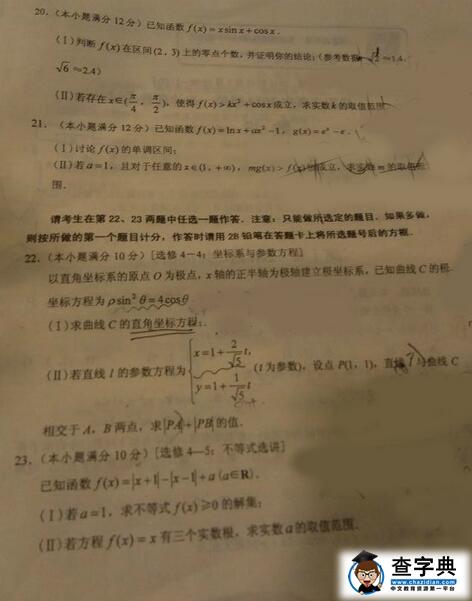 20.(本小题满分 12 分) 已知函数 f(x)=x sin x+cos x.
(Ⅰ)判断 f(x)在区间(2, 3)上的零点个数, 并证明你的结论; (参考数据 √2≈1.4,
√6≈2.4)
(Ⅱ)若存在 x∈(π/4, π/2), 使得 f(x)>kx²+cos x 成立, 求实数 k 的取值范围
21. (本小题满分 12 分) 已知函数 f(x)=ln x+ax²-1, g(x)=eˣ-e.
(Ⅰ)讨论 f(x)的单调区间;
(Ⅱ)若 a=1, 且对于任意的 x∈(1, +∞), mg(x)>f(x)成立, 求实数 m 的取值范
围.
请考生在第 22、23 两题中任选一题作答. 注意: 只能做所选定的题目. 如果多做,
则按所做的第一个题目计分, 作答时请用 2B 铅笔在答题卡上将所选题号后的方框.
22.(本小题满分 10 分) [选修 4—4: 坐标系与参数方程]
以直角坐标系的原点 O 为极点, x 轴的正半轴为极轴建立极坐标系, 已知曲线 C 的极
坐标方程为 ρsin²θ=4cosθ.
(Ⅰ)求曲线 C 的直角坐标方程;
(Ⅱ)若直线 l 的参数方程为 { x=1+2/√5 t, y=1+1/√5 t (t 为参数), 设点 P(1, 1), 直线 l 与曲线 C
相交于 A, B 两点, 求|PA|+|PB|的值.
23.(本小题满分 10 分) [选修 4—5: 不等式选讲]
已知函数 f(x)=|x+1|-|x-1|+a (a∈R).
(Ⅰ)若 a=1, 求不等式 f(x)≥0 的解集;
(Ⅱ)若方程 f(x)=x 有三个实数根, 求实数 a 的取值范围.
查字典
www.chazidian.com
中文教育资源第一平台